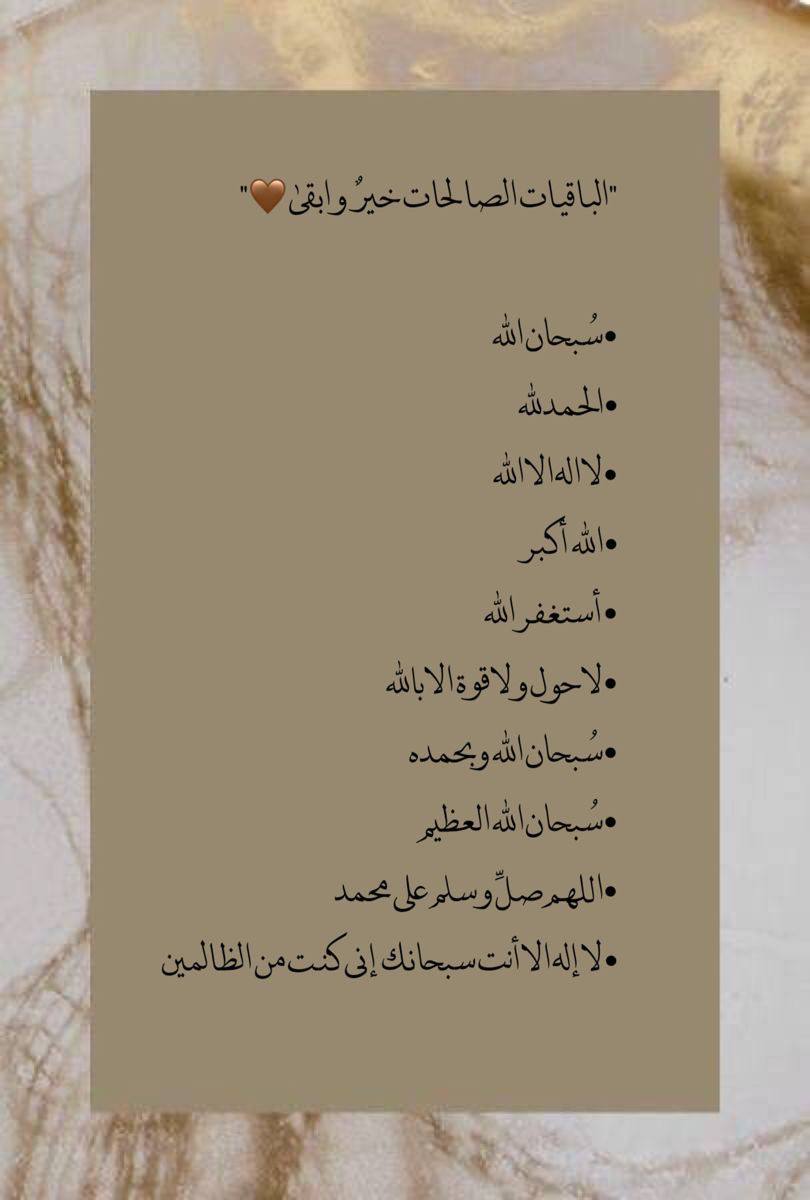 "الباقيات الصالحات خيرٌ وابقىٰ🤎"
•سُبحان الله
•الحمدلله
•لا اله الا الله
•الله أكبر
•أستغفر الله
•لا حول ولا قوة الا بالله
•سُبحان الله وبحمده
•سُبحان الله العظيم
•اللهم صلِّ وسلم على محمد
•لا إله الا أنت سبحانك إني كنت من الظالمين